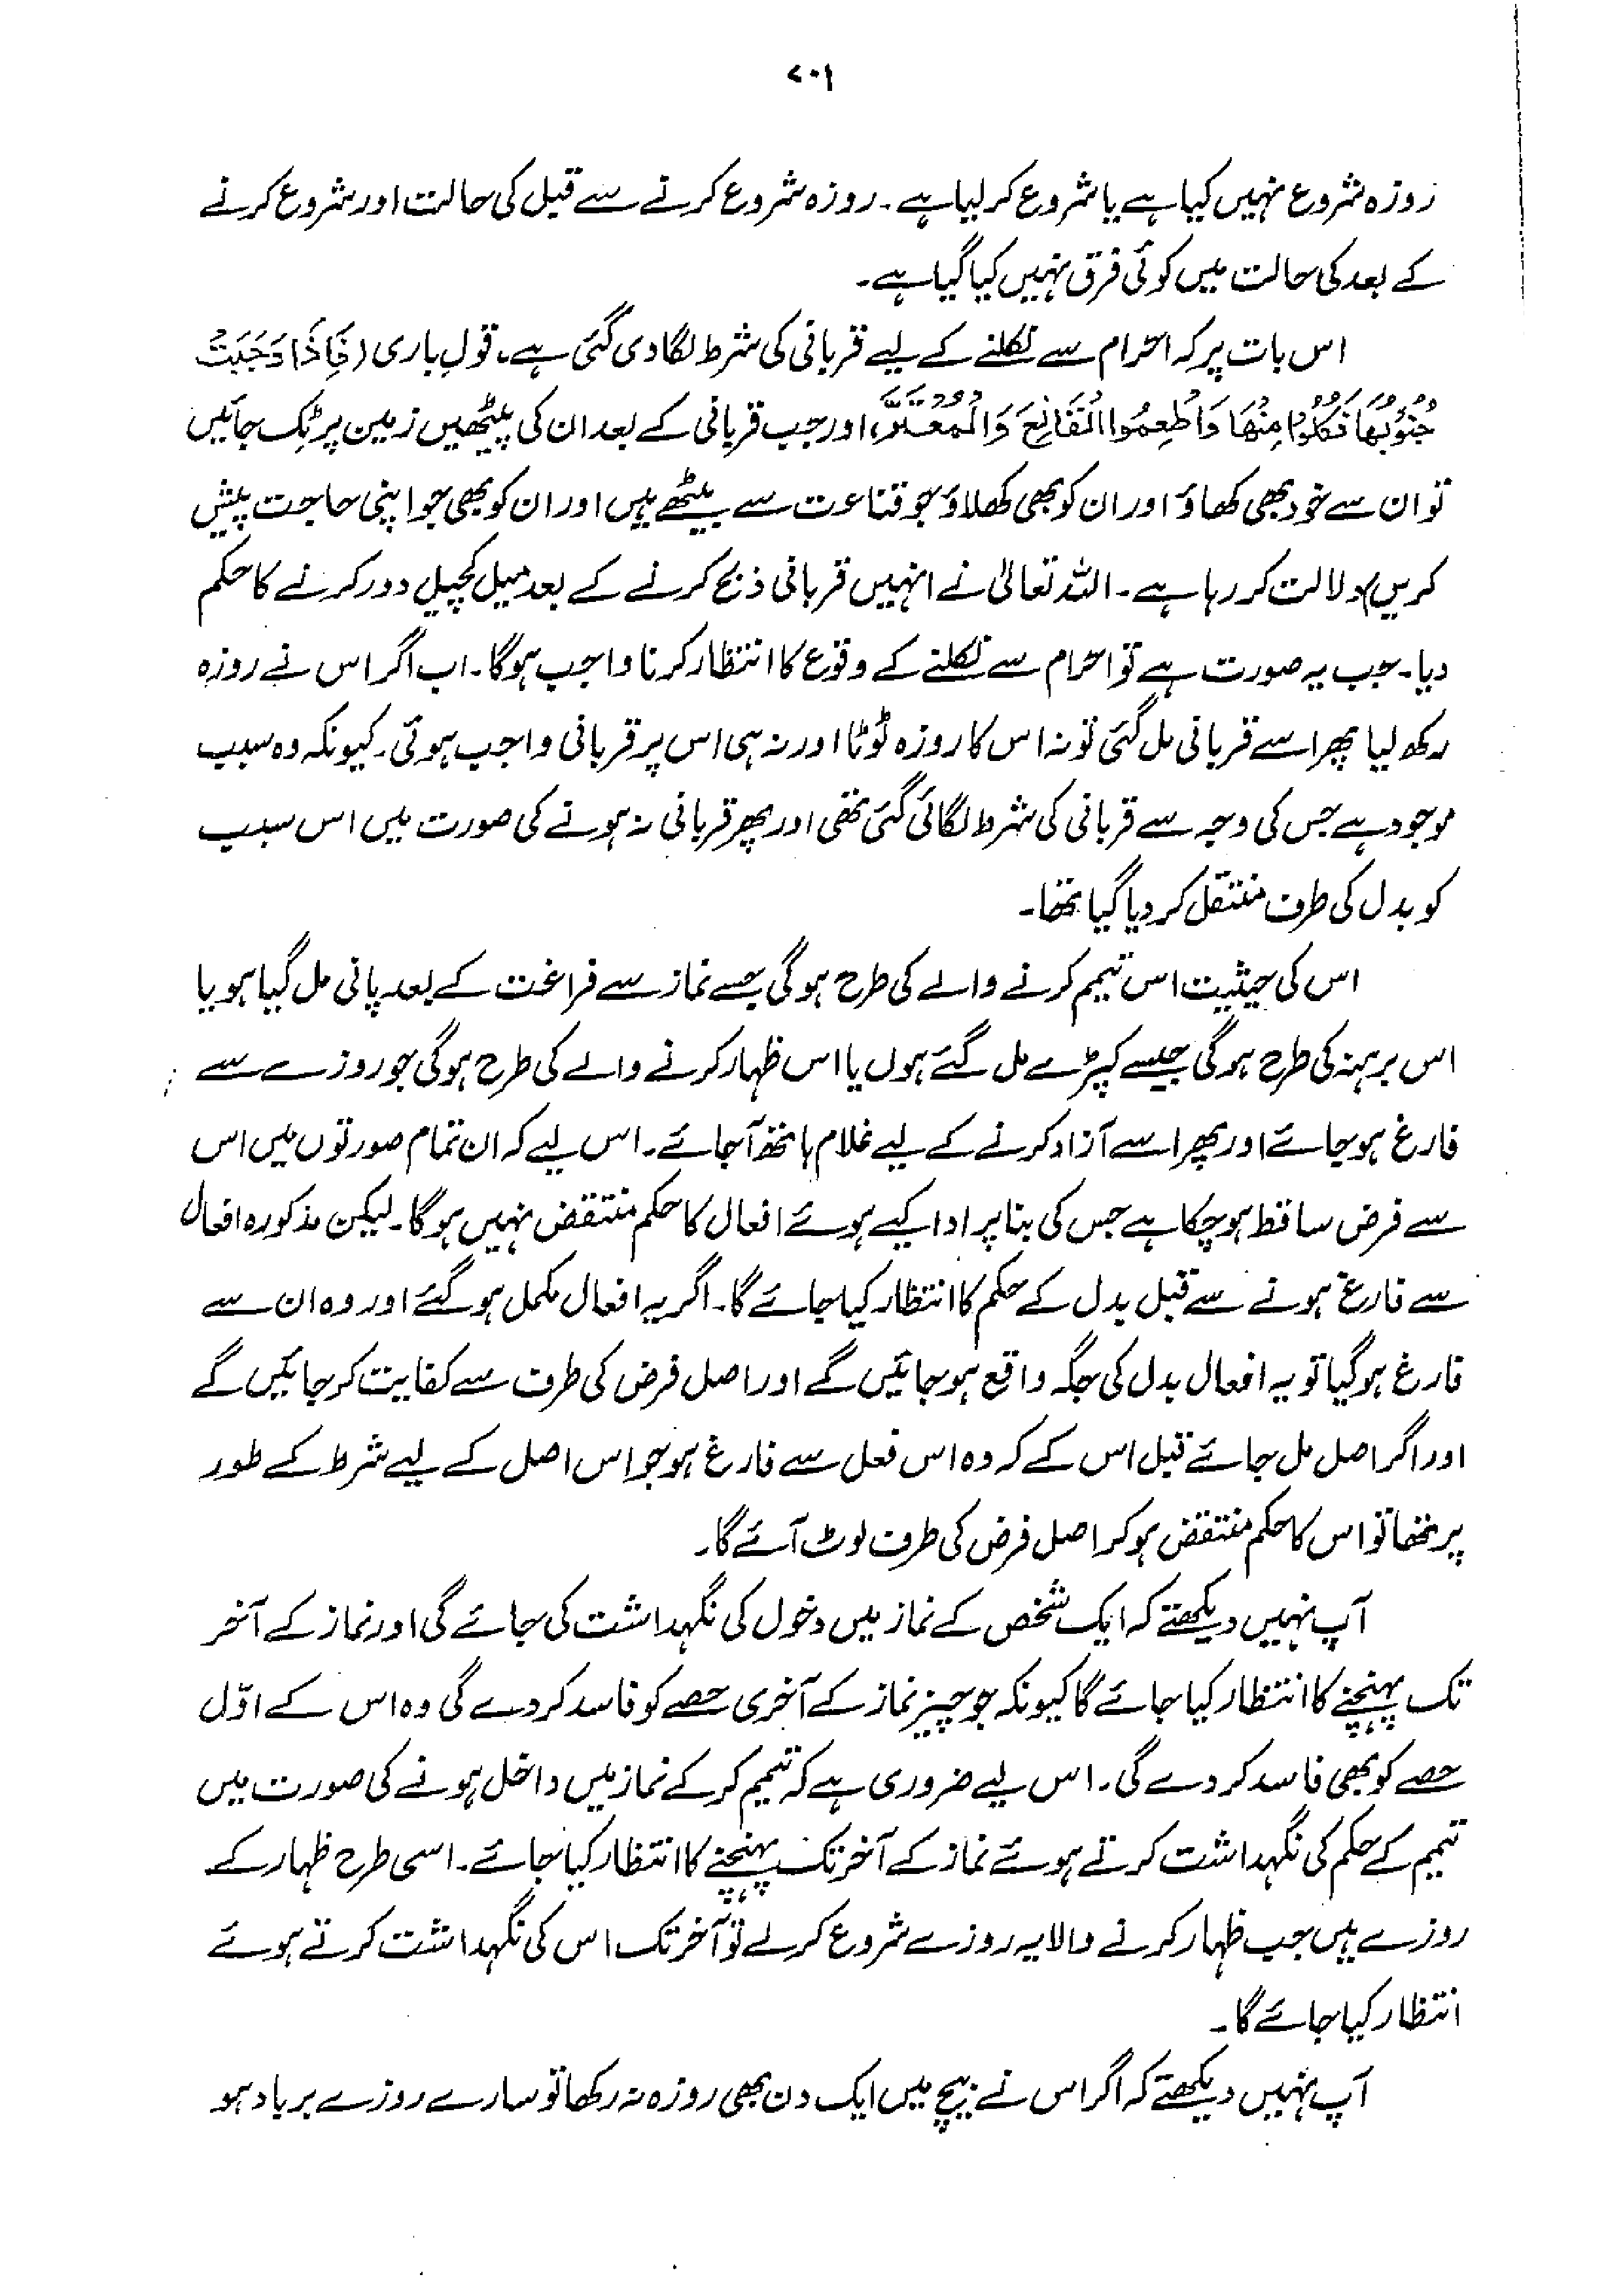 ۷۰۱
روزہ شروع نہیں کیا ہے یا شروع کر لیا ہے۔ روزہ شروع کرنے سے قبل کی حالت اور شروع کرنے
کے بعد کی حالت میں کوئی فرق نہیں کیا گیا ہے۔
اس بات پر کہ احرام سے نکلنے کے لیے قربانی کی شرط لگا دی گئی ہے، قولِ باری (فَاِذَا وَجَبَتْ
جُنُوْبُهَا فَكُلُوْا مِنْهَا وَاَطْعِمُوا الْقَانِعَ وَالْمُعْتَرَّ، اور جب قربانی کے بعد ان کی پیٹھیں زمین پر ٹک جائیں
تو ان سے خود بھی کھاؤ اور ان کو بھی کھلاؤ جو قناعت سے بیٹھے ہیں اور ان کو بھی جو اپنی حاجت پیش
کریں) دلالت کر رہا ہے۔ اللہ تعالیٰ نے انہیں قربانی ذبح کرنے کے بعد میل کچیل دور کرنے کا حکم
دیا۔ جب یہ صورت ہے تو احرام سے نکلنے کے وقوع کا انتظار کرنا واجب ہوگا۔ اب اگر اس نے روزہ
رکھ لیا پھر اسے قربانی مل گئی تو نہ اس کا روزہ ٹوٹا اور نہ ہی اس پر قربانی واجب ہوئی۔ کیونکہ وہ سبب
موجود ہے جس کی وجہ سے قربانی کی شرط لگائی گئی تھی اور پھر قربانی نہ ہونے کی صورت میں اس سبب
کو بدل کی طرف منتقل کر دیا گیا تھا۔
اس کی حیثیت اس تیمم کرنے والے کی طرح ہوگی جسے نماز سے فراغت کے بعد پانی مل گیا ہو یا
اس برہنہ کی طرح ہوگی جیسے کپڑے مل گئے ہوں یا اس ظہار کرنے والے کی طرح ہوگی جو روزے سے
فارغ ہو جائے اور پھر اسے آزاد کرنے کے لیے غلام ہاتھ آجائے۔ اس لیے کہ ان تمام صورتوں میں اس
سے فرض ساقط ہو چکا ہے جس کی بنا پر ادا کیے ہوئے افعال کا حکم منتقض نہیں ہوگا۔ لیکن مذکورہ افعال
سے فارغ ہونے سے قبل بدل کے حکم کا انتظار کیا جائے گا۔ اگر یہ افعال مکمل ہو گئے اور وہ ان سے
فارغ ہو گیا تو یہ افعال بدل کی جگہ واقع ہو جائیں گے اور اصل فرض کی طرف سے کفایت کر جائیں گے
اور اگر اصل مل جائے قبل اس کے کہ وہ اس فعل سے فارغ ہو جو اس اصل کے لیے شرط کے طور
پر تھا تو اس کا حکم منتقض ہو کر اصل فرض کی طرف لوٹ آئے گا۔
آپ نہیں دیکھتے کہ ایک شخص کے نماز میں دخول کی نگہداشت کی جائے گی اور نماز کے آخر
تک پہنچنے کا انتظار کیا جائے گا کیونکہ جو چیز نماز کے آخری حصے کو فاسد کر دے گی وہ اس کے اوّل
حصے کو بھی فاسد کر دے گی۔ اس لیے ضروری ہے کہ تیمم کر کے نماز میں داخل ہونے کی صورت میں
تیمم کے حکم کی نگہداشت کرتے ہوئے نماز کے آخر تک پہنچنے کا انتظار کیا جائے۔ اسی طرح ظہار کے
روزے ہیں جب ظہار کرنے والا یہ روزے شروع کر لے تو آخر تک اس کی نگہداشت کرتے ہوئے
انتظار کیا جائے گا۔
آپ نہیں دیکھتے کہ اگر اس نے بیچ میں ایک دن بھی روزہ نہ رکھا تو سارے روزے برباد ہو